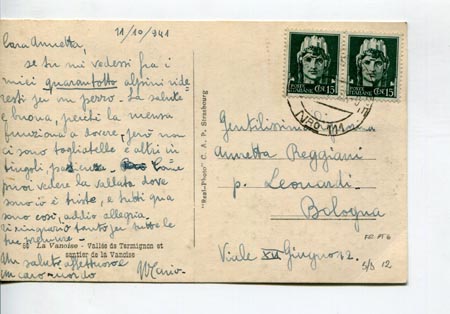 11/10/941
Cara Annetta,
se tu mi vedessi fra i
miei quarantotto alpini ride-
resti per un pezzo. La salute
è buona, perchè la mensa
funziona a dovere, però non
ci sono tagliatelle e altri in-
Come
puoi vedere la vallata dove
sono io è triste, e tutti qua
sono così, addio allegria.
Ti ringrazio tanto per tutte le
tue premure.
La Vanoise - Vallée de Termignon et
sentier de la Vanoise
Un saluto affettuoso e
un caro ricordo
Mario.
"Real-Photo" C. A. P. Strasbourg
POSTE ITALIANE CENT. 15
POSTE ITALIANE CENT. 15
NRO 111
Gentilissima
Annetta Reggiani
p. Leonardi -
Bologna
Viale XII Giugno 2.
5/3 12